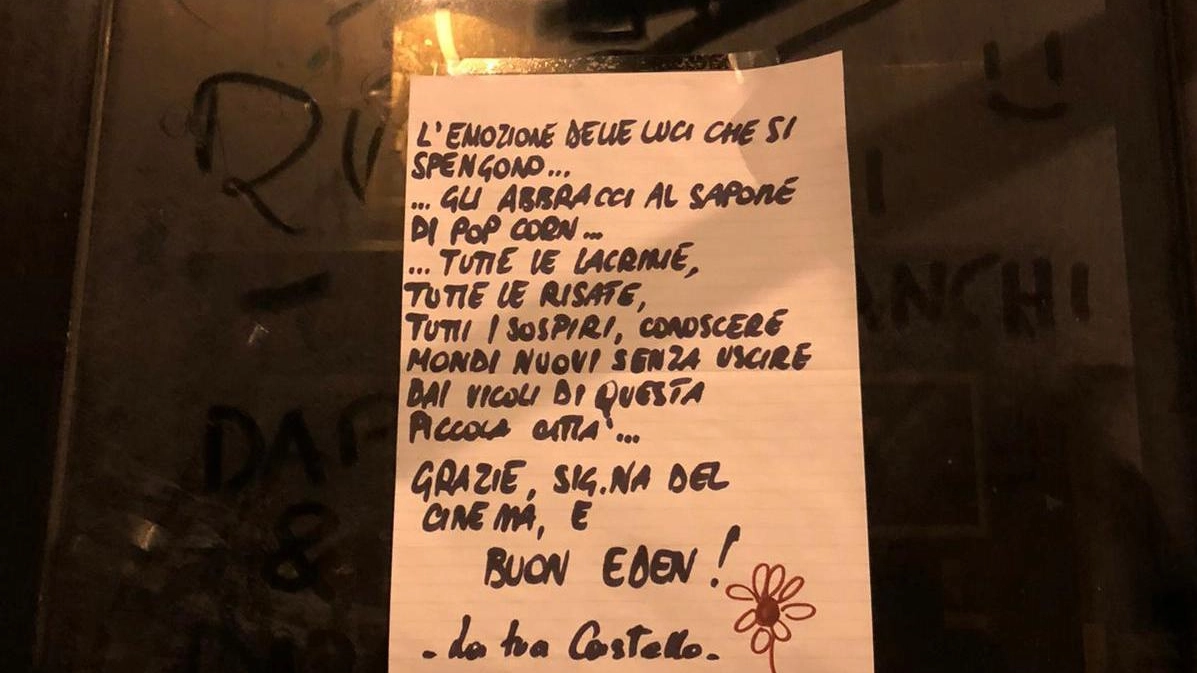 L'EMOZIONE DELLE LUCI CHE SI
SPENGONO...
... GLI ABBRACCI AL SAPORE
DI POP CORN...
... TUTTE LE LACRIME,
TUTTE LE RISATE,
TUTTI I SOSPIRI, CONOSCERE
MONDI NUOVI SENZA USCIRE
DAI VICOLI DI QUESTA
PICCOLA CITTA'...
GRAZIE, SIG.NA DEL
CINEMA, E
BUON EDEN!
- La tua Castello -
&